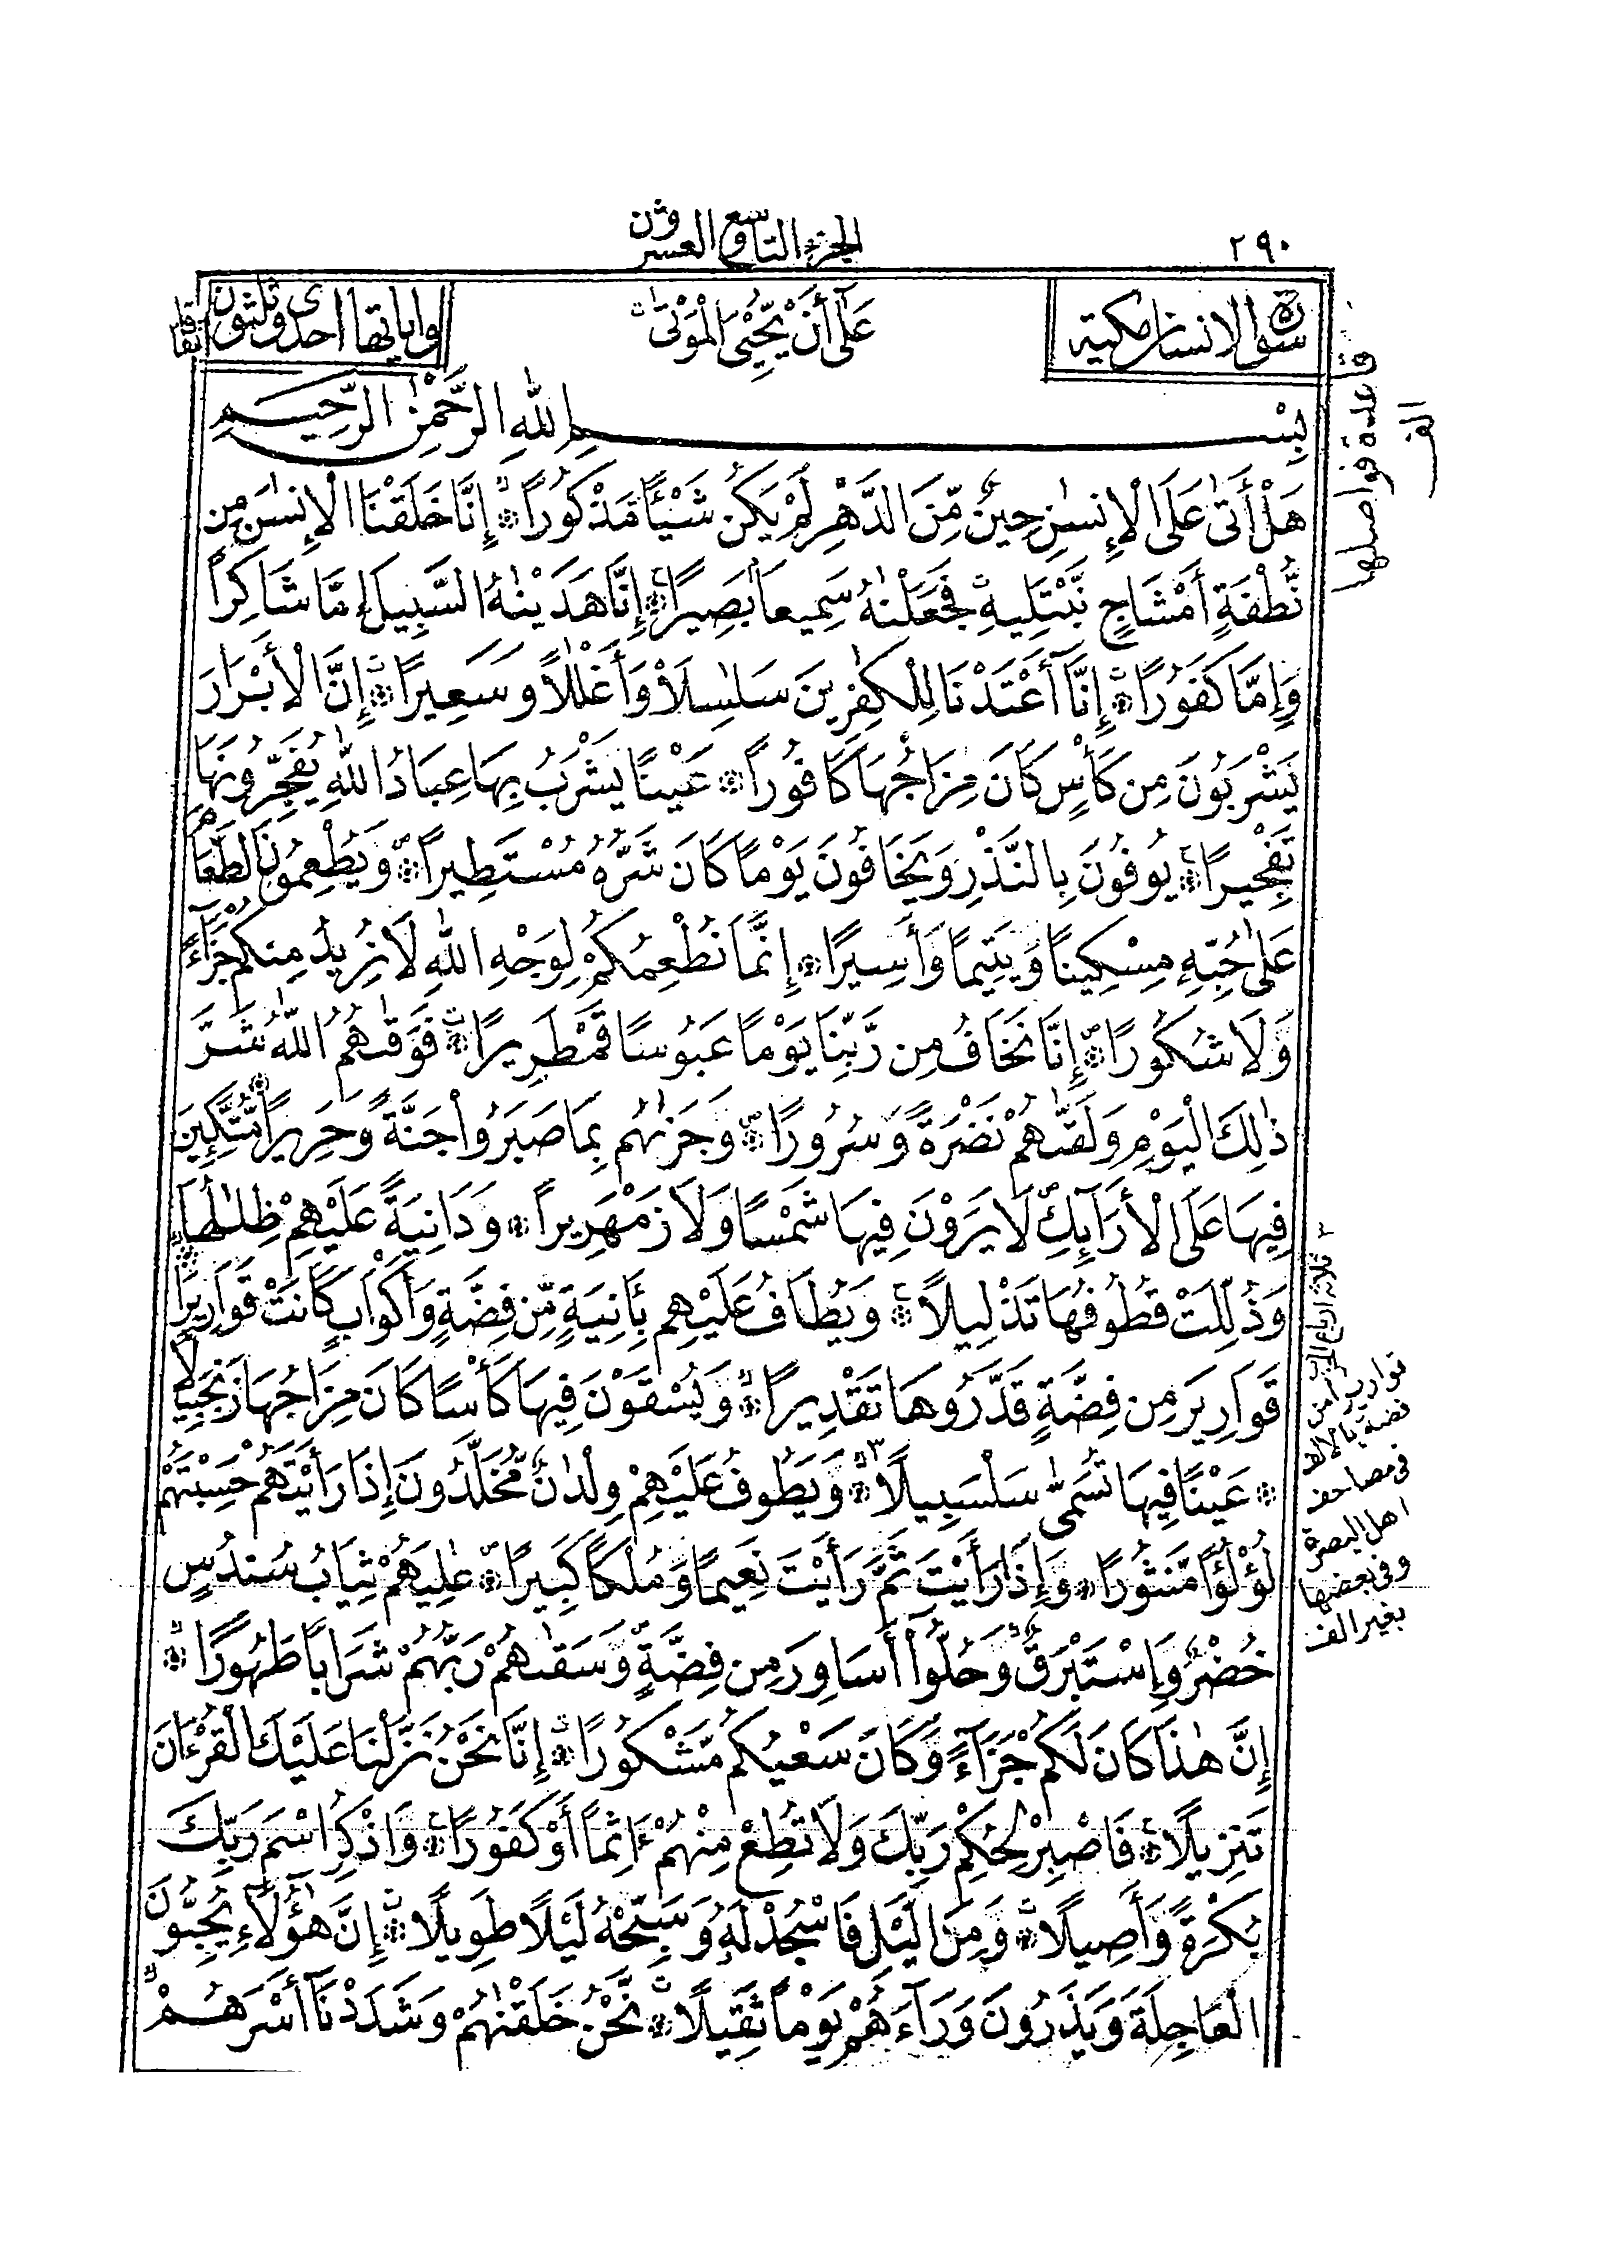 ٢٩٠
الجزء التاسع والعشرون
سورة الإنسان مكية
عَلَىٰٓ أَنْ يُّحْيِۦَ الْمَوْتَىٰ
وآياتها احدى وثلثون
اتفاقا
بِسْمِ اللَّهِ الرَّحْمَٰنِ الرَّحِيمِ
هَلْ أَتَىٰ عَلَى الْإِنسَٰنِ حِينٌ مِّنَ الدَّهْرِ لَمْ يَكُن شَيْـًٔا مَّذْكُورًا ۞ إِنَّا خَلَقْنَا الْإِنسَٰنَ مِن
نُّطْفَةٍ أَمْشَاجٍ نَّبْتَلِيهِ فَجَعَلْنَٰهُ سَمِيعًا بَصِيرًا ۞ إِنَّا هَدَيْنَٰهُ السَّبِيلَ إِمَّا شَاكِرًا
وَإِمَّا كَفُورًا ۞ إِنَّآ أَعْتَدْنَا لِلْكَٰفِرِينَ سَلَٰسِلَا۟ وَأَغْلَٰلًا وَسَعِيرًا ۞ إِنَّ الْأَبْرَارَ
يَشْرَبُونَ مِن كَأْسٍ كَانَ مِزَاجُهَا كَافُورًا ۞ عَيْنًا يَشْرَبُ بِهَا عِبَادُ اللَّهِ يُفَجِّرُونَهَا
تَفْجِيرًا ۞ يُوفُونَ بِالنَّذْرِ وَيَخَافُونَ يَوْمًا كَانَ شَرُّهُ مُسْتَطِيرًا ۞ وَيُطْعِمُونَ الطَّعَامَ
عَلَىٰ حُبِّهِ مِسْكِينًا وَيَتِيمًا وَأَسِيرًا ۞ إِنَّمَا نُطْعِمُكُمْ لِوَجْهِ اللَّهِ لَا نُرِيدُ مِنكُمْ جَزَآءً
وَلَا شُكُورًا ۞ إِنَّا نَخَافُ مِن رَّبِّنَا يَوْمًا عَبُوسًا قَمْطَرِيرًا ۞ فَوَقَىٰهُمُ اللَّهُ شَرَّ
ذَٰلِكَ الْيَوْمِ وَلَقَّىٰهُمْ نَضْرَةً وَسُرُورًا ۞ وَجَزَىٰهُم بِمَا صَبَرُوا۟ جَنَّةً وَحَرِيرًا ۞ مُّتَّكِـِٔينَ
فِيهَا عَلَى الْأَرَآئِكِ لَا يَرَوْنَ فِيهَا شَمْسًا وَلَا زَمْهَرِيرًا ۞ وَدَانِيَةً عَلَيْهِمْ ظِلَٰلُهَا
وَذُلِّلَتْ قُطُوفُهَا تَذْلِيلًا ۞ وَيُطَافُ عَلَيْهِم بِـَٔانِيَةٍ مِّن فِضَّةٍ وَأَكْوَابٍ كَانَتْ قَوَارِيرَا۟
قَوَارِيرَ مِن فِضَّةٍ قَدَّرُوهَا تَقْدِيرًا ۞ وَيُسْقَوْنَ فِيهَا كَأْسًا كَانَ مِزَاجُهَا زَنجَبِيلًا
۞ عَيْنًا فِيهَا تُسَمَّىٰ سَلْسَبِيلًا ۞ وَيَطُوفُ عَلَيْهِمْ وِلْدَٰنٌ مُّخَلَّدُونَ إِذَا رَأَيْتَهُمْ حَسِبْتَهُمْ
لُؤْلُؤًا مَّنثُورًا ۞ وَإِذَا رَأَيْتَ ثَمَّ رَأَيْتَ نَعِيمًا وَمُلْكًا كَبِيرًا ۞ عَٰلِيَهُمْ ثِيَابُ سُندُسٍ
خُضْرٌ وَإِسْتَبْرَقٌ وَحُلُّوٓا۟ أَسَاوِرَ مِن فِضَّةٍ وَسَقَىٰهُمْ رَبُّهُمْ شَرَابًا طَهُورًا ۞
إِنَّ هَٰذَا كَانَ لَكُمْ جَزَآءً وَكَانَ سَعْيُكُم مَّشْكُورًا ۞ إِنَّا نَحْنُ نَزَّلْنَا عَلَيْكَ الْقُرْءَانَ
تَنزِيلًا ۞ فَاصْبِرْ لِحُكْمِ رَبِّكَ وَلَا تُطِعْ مِنْهُمْ ءَاثِمًا أَوْ كَفُورًا ۞ وَاذْكُرِ اسْمَ رَبِّكَ
بُكْرَةً وَأَصِيلًا ۞ وَمِنَ الَّيْلِ فَاسْجُدْ لَهُ وَسَبِّحْهُ لَيْلًا طَوِيلًا ۞ إِنَّ هَٰٓؤُلَآءِ يُحِبُّونَ
الْعَاجِلَةَ وَيَذَرُونَ وَرَآءَهُمْ يَوْمًا ثَقِيلًا ۞ نَّحْنُ خَلَقْنَٰهُمْ وَشَدَدْنَآ أَسْرَهُمْ
قاعدة فواصلها
الف
ثلاثة ارباع الحزب
قوارير امن
فضة بالالف
فى مصاحف
اهل البصرة
وفى بعضها
بغير الف